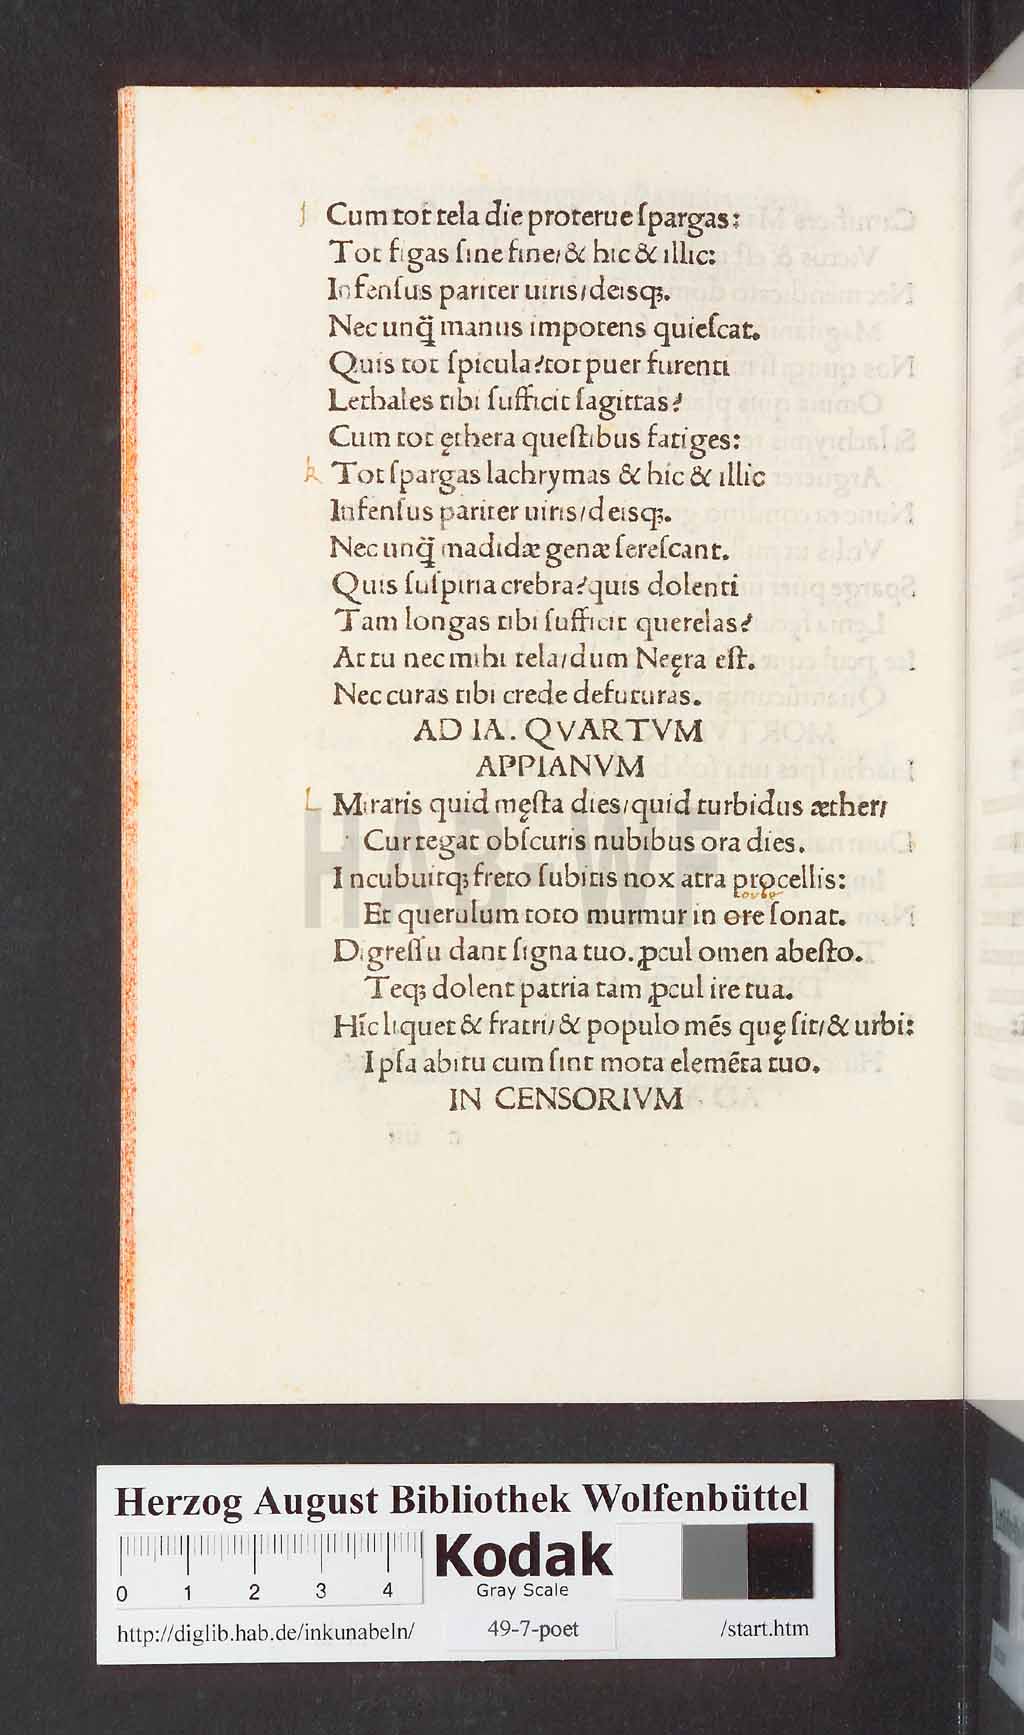 j Cum tot tela die proterue ſpargas:
Tot figas ſine fine/ & hic & illic:
Infenſus pariter uiris/ deisq;.
Nec unq̃ manus impotens quieſcat.
Quis tot ſpicula? tot puer furenti
Lethales tibi ſufficit ſagittas?
Cum tot ęthera queſtibus fatiges:
k Tot ſpargas lachrymas & hic & illic
Infenſus pariter uiris/ deisq;.
Nec unq̃ madidæ genæ ſereſcant.
Quis ſuſpiria crebra? quis dolenti
Tam longas tibi ſufficit querelas?
At tu nec mihi tela/ dum Neęra eſt.
Nec curas tibi crede defuturas.
AD IA. QVARTVM
APPIANVM
L Miraris quid męſta dies/ quid turbidus æther/
Cur tegat obſcuris nubibus ora dies.
Incubuitq; freto ſubitis nox atra procellis:
Et querulum toto murmur in ore ſonat.
Digreſſu dant ſigna tuo. ꝓcul omen abeſto.
Teq; dolent patria tam ꝓcul ire tua.
Hic liquet & fratri/ & populo mẽs quę ſit/ & urbi:
Ipſa abitu cum ſint mota elemẽta tuo.
IN CENSORIVM
HAB-WF
Herzog August Bibliothek Wolfenbüttel
0 1 2 3 4
Kodak
Gray Scale
http://diglib.hab.de/inkunabeln/ 49-7-poet /start.htm